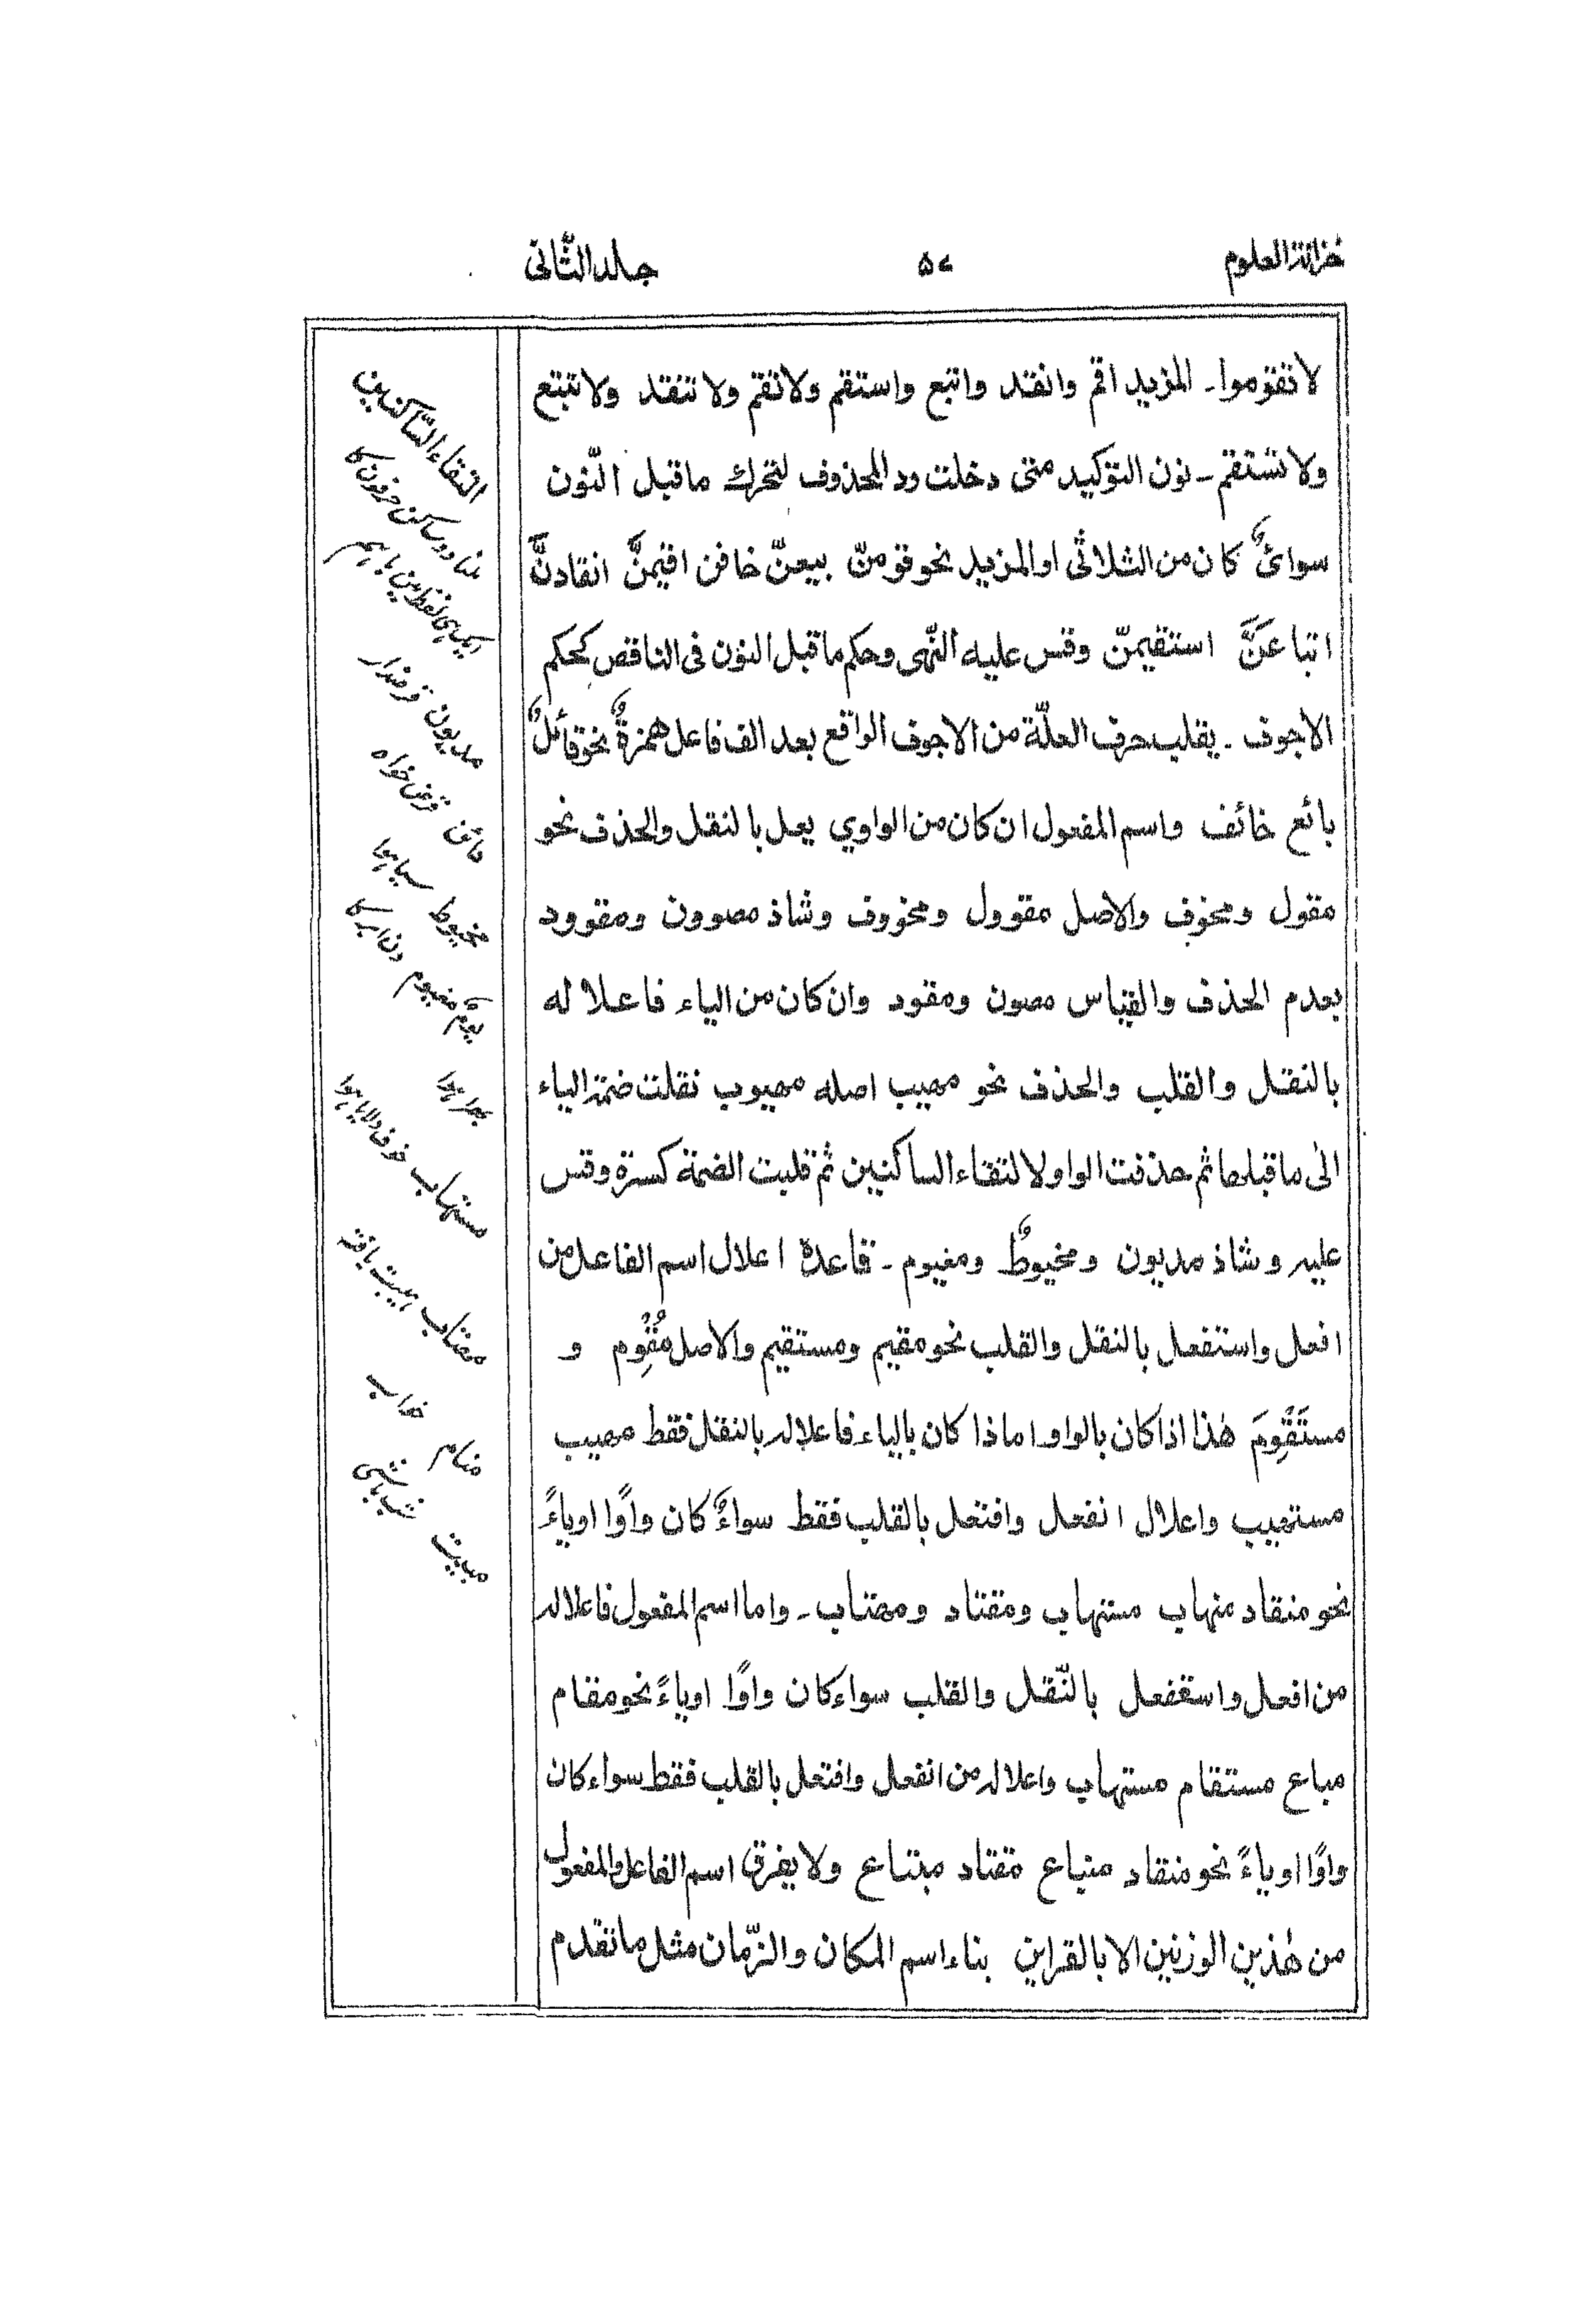 خزانة العلوم
۵۷
جلد الثّانی
لا تقوموا۔ المزید اقم وانقد واتبع واستقم ولا تقم ولا تنقد ولا تبتع
ولا تستقم۔ نون التوکید متی دخلت رد المحذوف لتحرك ماقبل النّون
سوائٌ کان من الثلاثی او المزید نحو قومنّ بیعنّ خافن اقیمنَّ انقادنَّ
اتباعَنَّ استقیمنّ وقس علیه النّهی وحکم ماقبل النون فی الناقص کحکم
الاجوف۔ یقلب حرف العلّة من الاجوف الواقع بعد الف فاعل همزةٌ نحو قائلٌ
بائع خائف واسم المفعول ان کان من الواوي یعل بالنقل والحذف نحو
مقول ومخوف والاصل مقوول ومخووف وشاذ مصوون ومقوود
بعدم الحذف والقیاس مصون ومقود وان کان من الیاء فاعلاله
بالنقل والقلب والحذف نحو مهیب اصله مهیوب نقلت ضمة الیاء
الٰی ماقبلها ثم حذفت الواو لالتقاء الساکنین ثم قلبت الضمة کسرة وقس
علیه وشاذ مدیون ومخیوطٌ ومغیوم۔ قاعدة اعلال اسم الفاعل من
افعل واستفعل بالنقل والقلب نحو مقیم ومستقیم والاصل مُقْوِم و
مستَقْوِمَ هٰذا اذا کان بالواو اما ذا کان بالیاء فاعلاله بالنقل فقط مهیب
مستهیب واعلال انفعل وافتعل بالقلب فقط سواءٌ کان واوًا او یاءً
نحو منقاد منهاب مستهاب ومقتاد ومهتاب۔ واما اسم المفعول فاعلاله
من افعل واستفعل بالنّقل والقلب سواء کان واوًا او یاءً نحو مقام
مباع مستقام مستهاب واعلاله من انفعل وافتعل بالقلب فقط سواء کان
واوًا او یاءً نحو منقاد منباع مقتاد مبتاع ولا یفرق اسم الفاعل والمفعول
من هٰذین الوزنین الا بالقراین بناء اسم المکان والزّمان مثل ماتقدم
التقاء السّاکنین
ملنا دو ساکن حرفون کا
ایک ہی لفظ مین باہم
مدیون قرضدار
دائن قرض خواہ
مخیوط سیا ہوا
یومٌ مغیوم دن ابر کا
مستهاب خوف دلایا ہوا
مهتاب ہیبت یافتہ
منام خواب
مبیت شب باشی